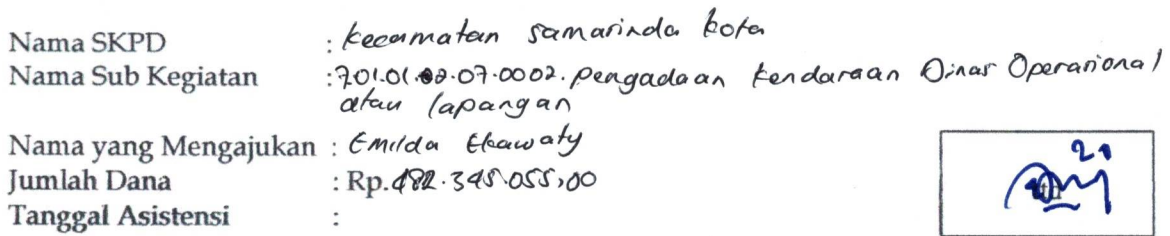 Nama SKPD : Kecamatan Samarinda Kota
Nama Sub Kegiatan : 7.01.01.2.07.0002. Pengadaan Kendaraan Dinas Operasional
atau lapangan
Nama yang Mengajukan : Emilda Ekawaty
Jumlah Dana : Rp. 482.345.055,00
Tanggal Asistensi :